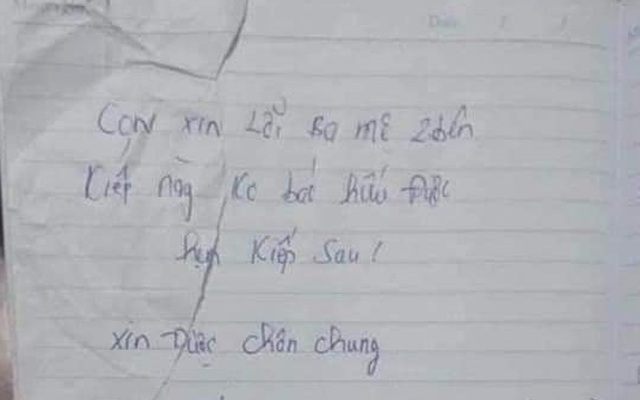 Date: / /
Con xin Lỗi Ba mẹ 2 bên
Kiếp này Ko báo hiếu Được
hẹn Kiếp Sau!
xin Được chôn chung